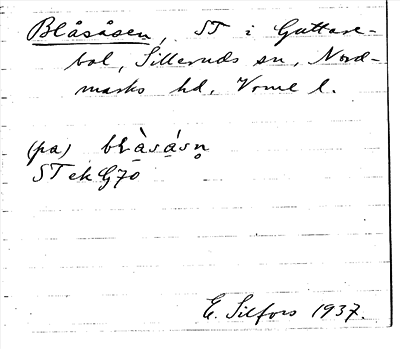 Blåsåsen, ST i Guttare-
bol, Silleruds sn, Nord-
marks hd, Vrml l.
(pa) bLà̱sá̱sn̥
ST ek G70
E. Silfors 1937.